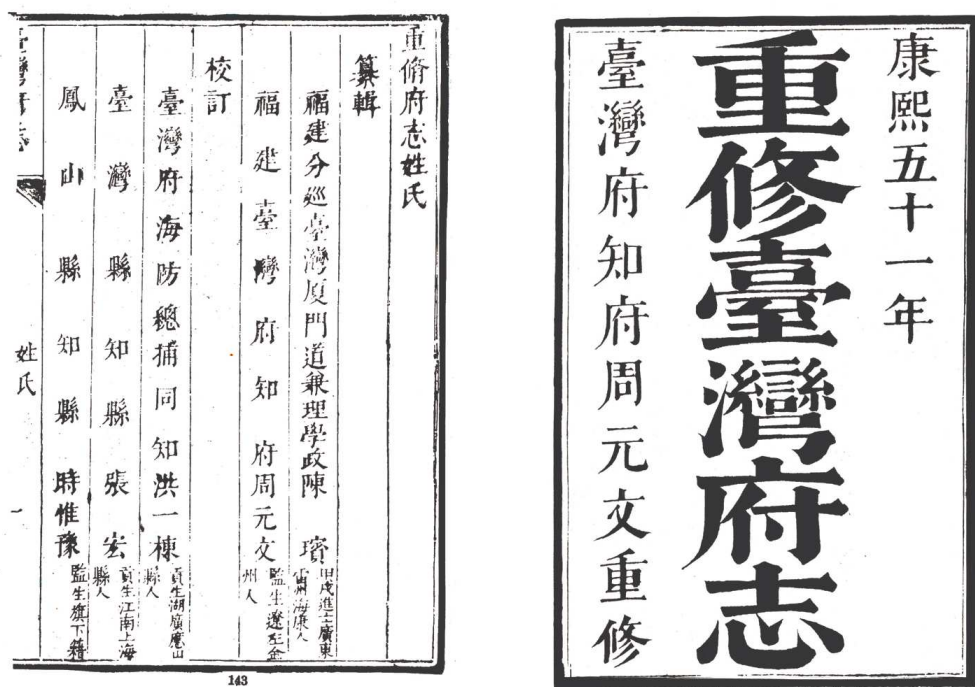 康熙五十一年
重修臺灣府志
臺灣府知府周元文重修
重脩府志姓氏
纂輯
福建分廵臺灣厦門道兼理學政陳璸
甲戌進士廣東
雷州海康人
福建臺灣府知府周元文
監生遼左金
州人
校訂
臺灣府海防總捕同知洪一棟
貢生湖廣應山
縣人
臺灣縣知縣張宏
貢生江南上海
縣人
鳳山縣知縣時惟豫
監生旗下籍
臺灣府志
姓氏
一
143